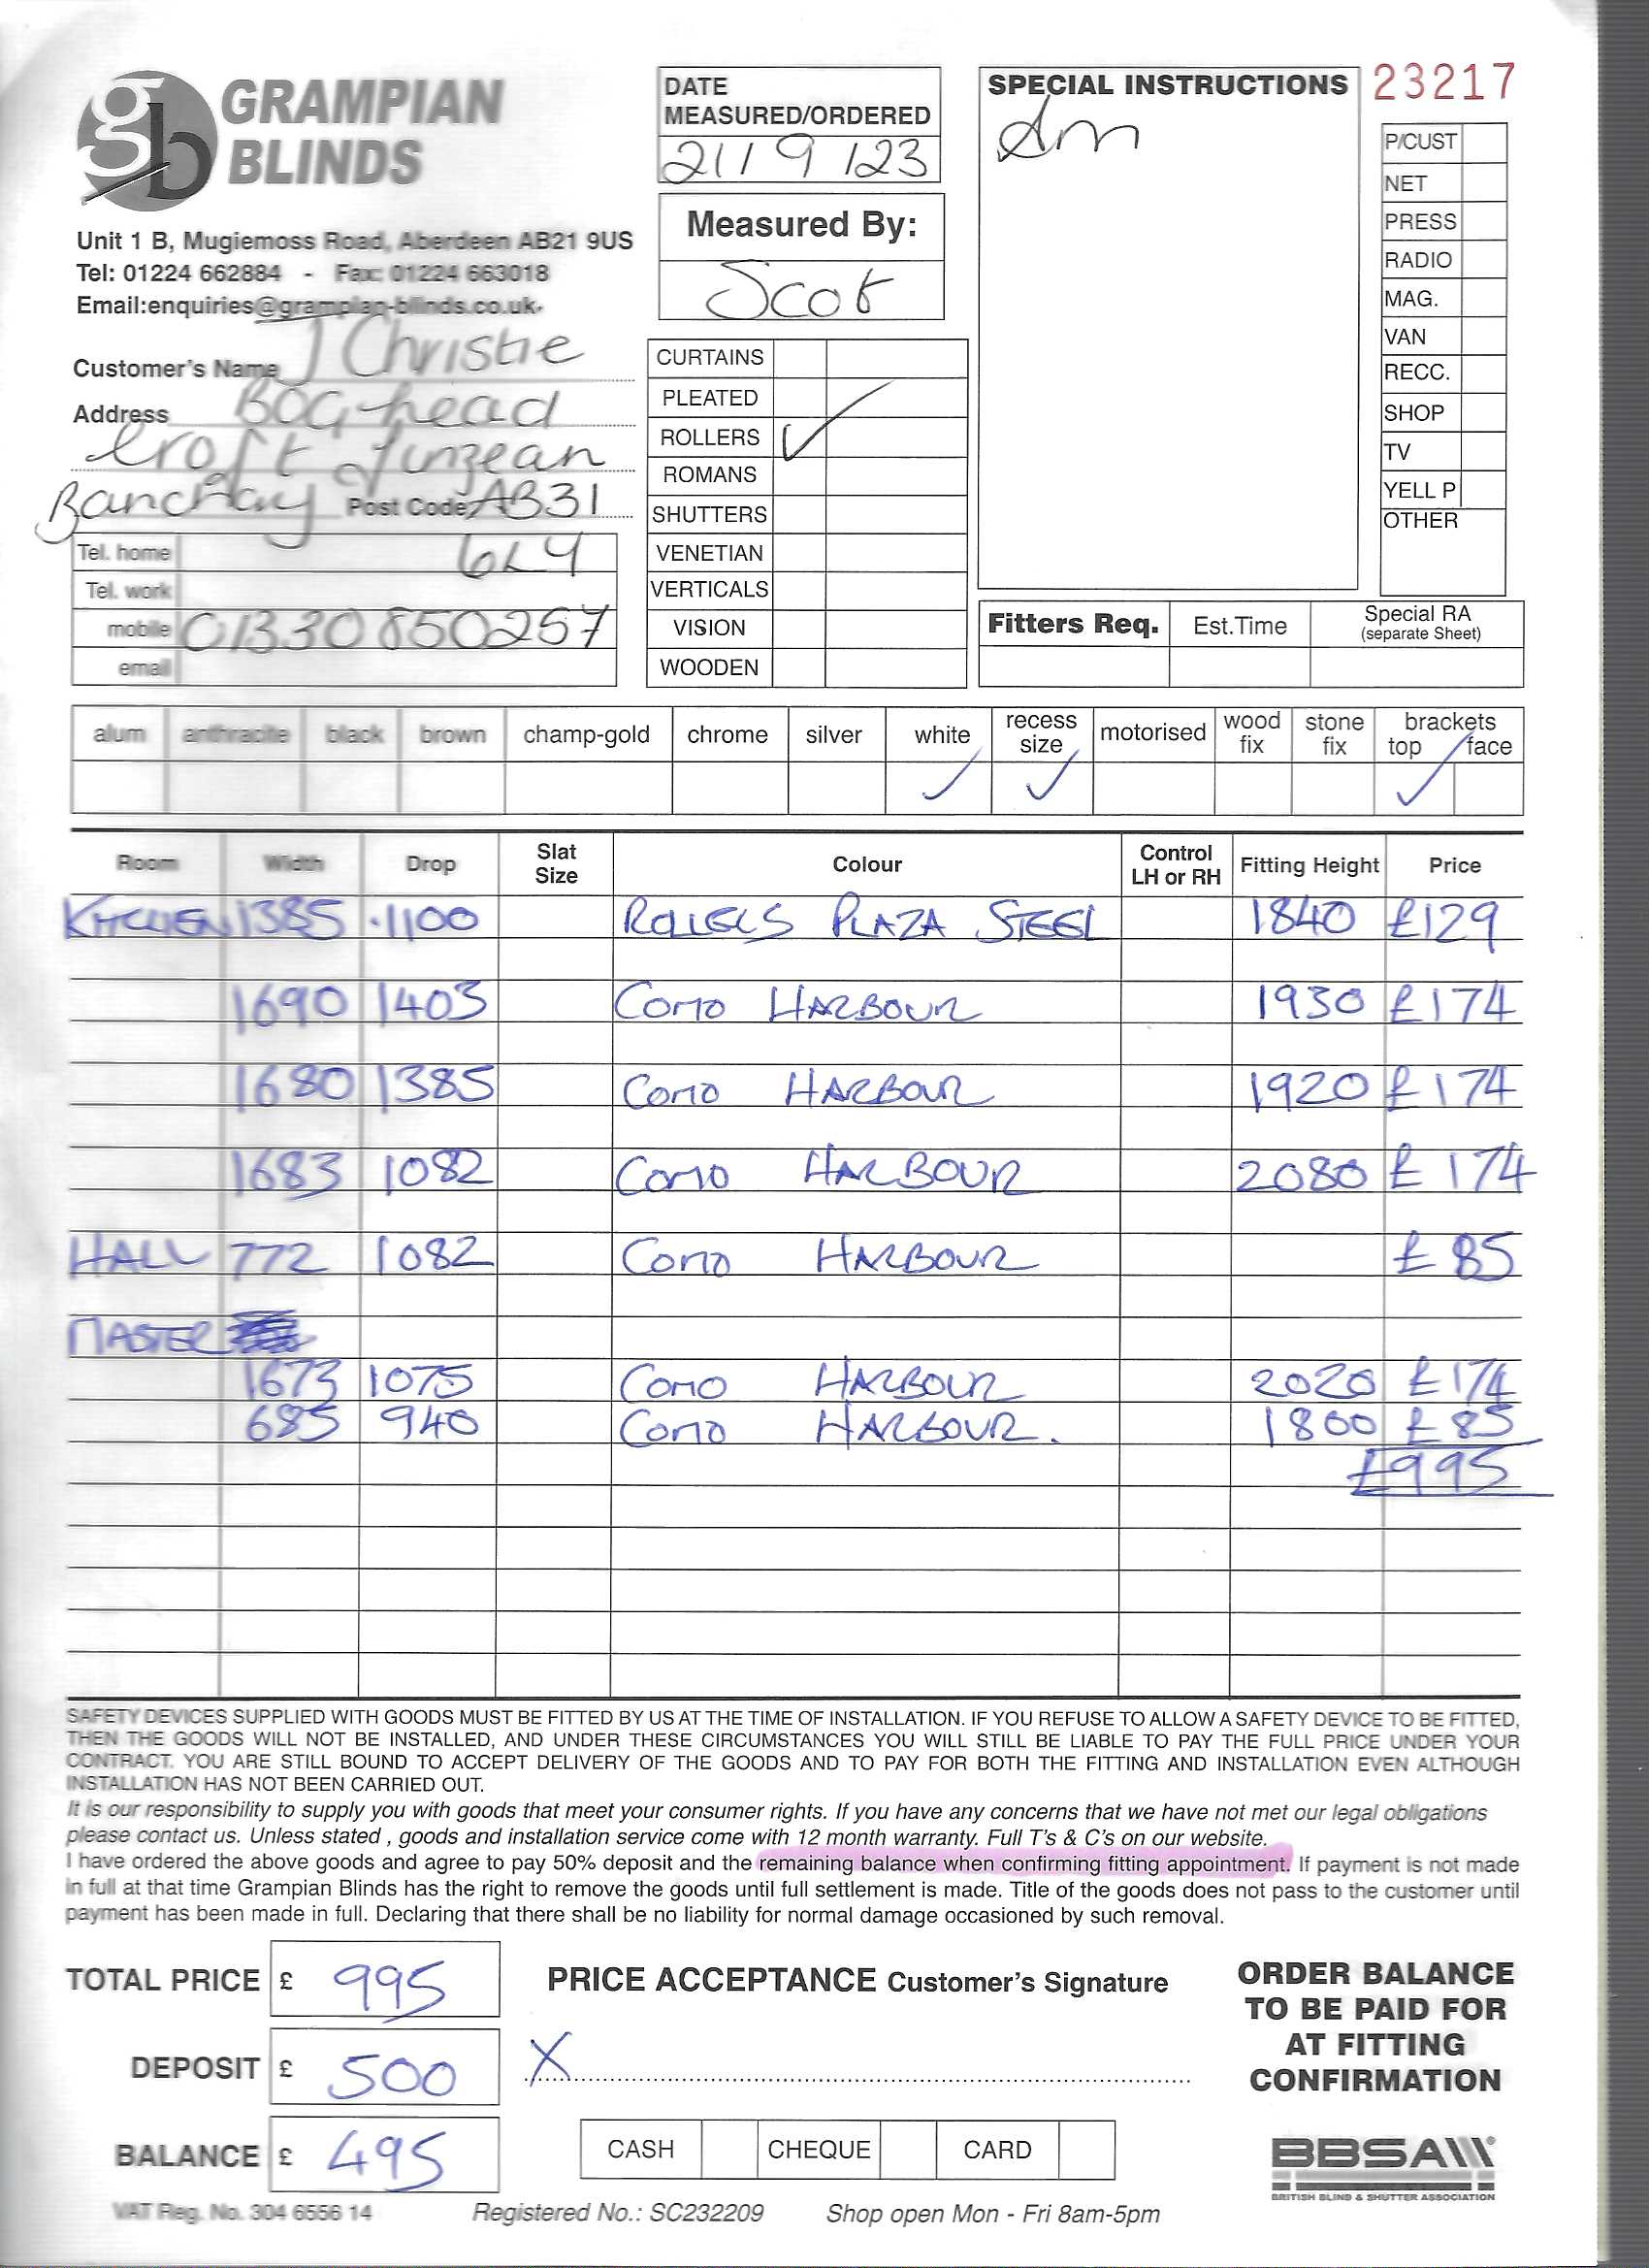 gb GRAMPIAN BLINDS
Unit 1 B, Mugiemoss Road, Aberdeen AB21 9US
Tel: 01224 662884 - Fax: 01224 663018
Email:enquiries@grampian-blinds.co.uk
Customer's Name J Christie
Address Boghead
Croft Finzean
Banchory Post Code AB31
Tel. home 6LY
Tel. work
mobile 01330 850257
email
DATE
MEASURED/ORDERED
21/9/23
Measured By:
Scot
CURTAINS
PLEATED
ROLLERS ✓
ROMANS
SHUTTERS
VENETIAN
VERTICALS
VISION
WOODEN
SPECIAL INSTRUCTIONS
23217
P/CUST
NET
PRESS
RADIO
MAG.
VAN
RECC.
SHOP
TV
YELL P
OTHER
Fitters Req. Est.Time Special RA
(separate Sheet)
alum anthracite black brown champ-gold chrome silver white recess size motorised wood fix stone fix brackets top face
✓ ✓ ✓
Room Width Drop Slat Size Colour Control LH or RH Fitting Height Price
KITCHEN 1385 1100 ROLLERS PLAZA STEEL 1840 £129
1690 1403 COMO HARBOUR 1930 £174
1680 1385 COMO HARBOUR 1920 £174
1683 1082 COMO HARBOUR 2080 £174
HALL 772 1082 COMO HARBOUR £85
MASTER
1673 1075 COMO HARBOUR 2020 £174
685 940 COMO HARBOUR. 1800 £85
£995
SAFETY DEVICES SUPPLIED WITH GOODS MUST BE FITTED BY US AT THE TIME OF INSTALLATION. IF YOU REFUSE TO ALLOW A SAFETY DEVICE TO BE FITTED,
THEN THE GOODS WILL NOT BE INSTALLED, AND UNDER THESE CIRCUMSTANCES YOU WILL STILL BE LIABLE TO PAY THE FULL PRICE UNDER YOUR
CONTRACT. YOU ARE STILL BOUND TO ACCEPT DELIVERY OF THE GOODS AND TO PAY FOR BOTH THE FITTING AND INSTALLATION EVEN ALTHOUGH
INSTALLATION HAS NOT BEEN CARRIED OUT.
It is our responsibility to supply you with goods that meet your consumer rights. If you have any concerns that we have not met our legal obligations
please contact us. Unless stated , goods and installation service come with 12 month warranty. Full T's & C's on our website.
I have ordered the above goods and agree to pay 50% deposit and the remaining balance when confirming fitting appointment. If payment is not made
in full at that time Grampian Blinds has the right to remove the goods until full settlement is made. Title of the goods does not pass to the customer until
payment has been made in full. Declaring that there shall be no liability for normal damage occasioned by such removal.
TOTAL PRICE £ 995
DEPOSIT £ 500
BALANCE £ 495
PRICE ACCEPTANCE Customer's Signature
X
CASH CHEQUE CARD
ORDER BALANCE
TO BE PAID FOR
AT FITTING
CONFIRMATION
BBSA
BRITISH BLIND & SHUTTER ASSOCIATION
VAT Reg. No. 304 6556 14 Registered No.: SC232209 Shop open Mon - Fri 8am-5pm